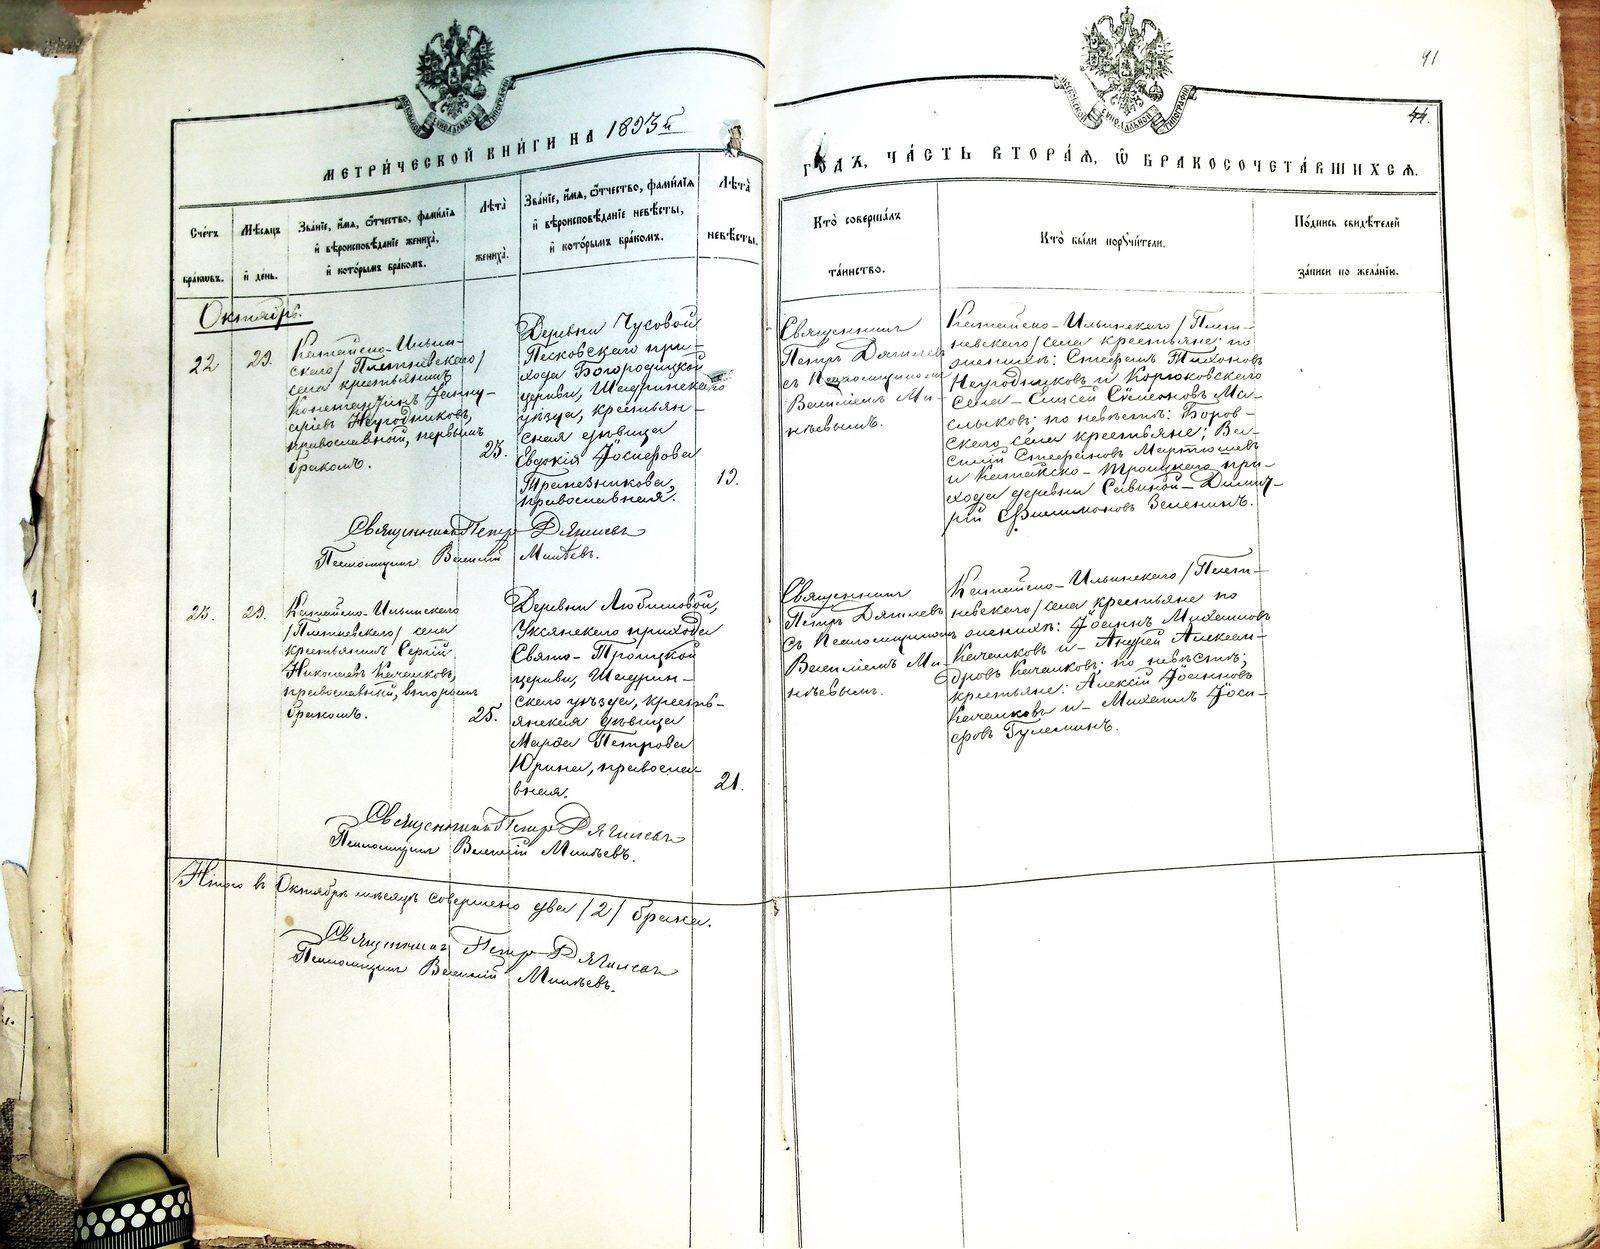 41
44.
МЕТРИЧЕСКОЙ КНИГИ НА 1893й
ГОДЪ, ЧАСТЬ ВТОРАЯ, Ѡ БРАКОСОЧЕТАВШИХСЯ.
Счетъ браковъ.
Мѣсяцъ и день.
Званіе, имя, отчество, фамилія
и вѣроисповѣданіе жениха,
и которымъ бракомъ.
Лѣта жениха.
Званіе, имя, отчество, фамилія
и вѣроисповѣданіе невѣсты,
и которымъ бракомъ.
Лѣта невѣсты.
Кто совершалъ
таинство.
Кто были поручители.
Подпись свидѣтелей
записи по желанію.
Октябрь.
22
29.
Катайско-Ильин-
скаго /Плетневскаго/
села крестьянинъ
Константинъ Іанну-
аріевъ Неугодниковъ,
православный, первымъ
бракомъ.
23.
Деревни Чусовой
Песковскаго при-
хода Богородицкой
церкви, Шадринскаго
уѣзда, крестьян-
ская дѣвица
Евдокія Іосифова
Трапезникова,
православная.
19.
Священникъ
Петръ Дягилевъ
съ Псаломщикомъ
Василіемъ Ми-
нѣевымъ.
Катайско-Ильинскаго /Плет-
невскаго/ села крестьяне: по
женихѣ: Стефанъ Тихоновъ
Неугодниковъ и Корюковскаго
села - Елисей Симеоновъ Ма-
слыковъ; по невѣстѣ: Боров-
скаго села крестьяне; Ва-
силій Стефановъ Мартюшевъ
и Катайско-Троицкаго при-
хода деревни Савиной - Димит-
рій Филимоновъ Зеленинъ.
Священникъ Петръ Дягилевъ
Псаломщикъ Василій Минѣевъ.
23.
29.
Катайско-Ильинскаго
/Плетневскаго/ села
крестьянинъ Сергій
Николаевъ Качалковъ,
православный, вторымъ
бракомъ.
25.
Деревни Любимовой,
Уксянскаго прихода
Свято-Троицкой
церкви, Шадрин-
скаго уѣзда, кресть-
янская дѣвица
Марѳа Петрова
Юрина, православ-
вная.
21.
Священникъ
Петръ Дягилевъ
съ Псаломщикомъ
Василіемъ Ми-
нѣевымъ.
Катайско-Ильинскаго /Плет-
невскаго/ села крестьяне по
женихѣ: Іоаннъ Михаиловъ
Качалковъ и - Андрей Алексан-
дровъ Качалковъ: по невѣстѣ;
крестьяне: Алексій Іоанновъ
Качалковъ и - Михаилъ Іоси-
фовъ Гулеминъ.
Священникъ Петръ Дягилевъ
Псаломщикъ Василій Минѣевъ.
Итого въ Октябрѣ мѣсяцѣ совершено два /2/ брака.
Священникъ Петръ Дягилевъ
Псаломщикъ Василій Минѣевъ.